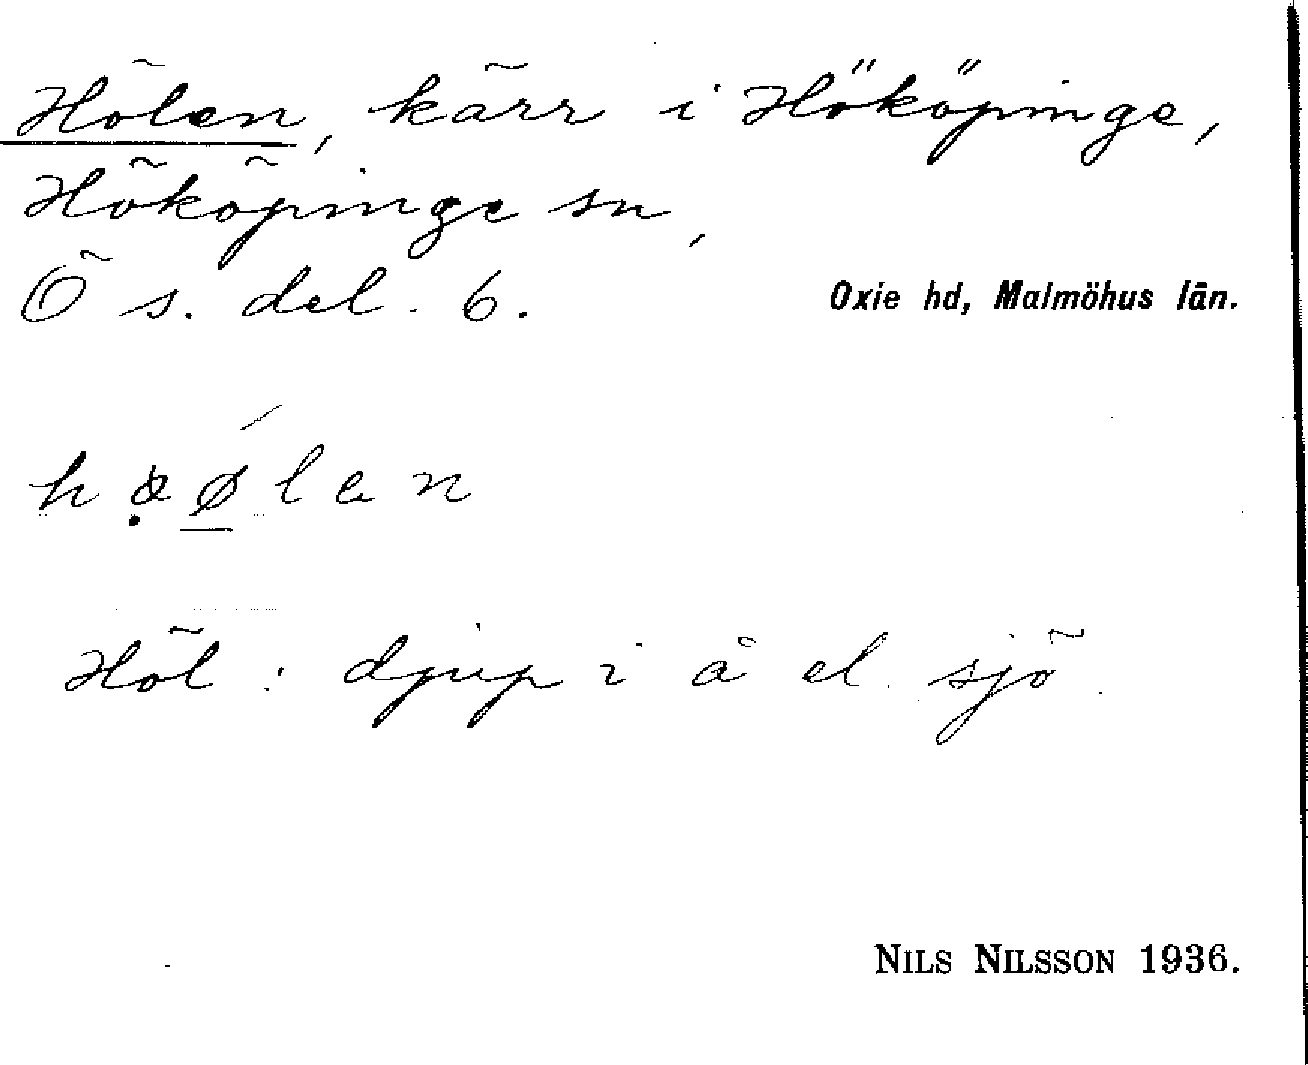 Hölen, kärr i Hököpinge,
Hököpinge sn,
Ö s. del. 6.
Oxie hd, Malmöhus län.
Höl: djup i å el. sjö.
NILS NILSSON 1936.